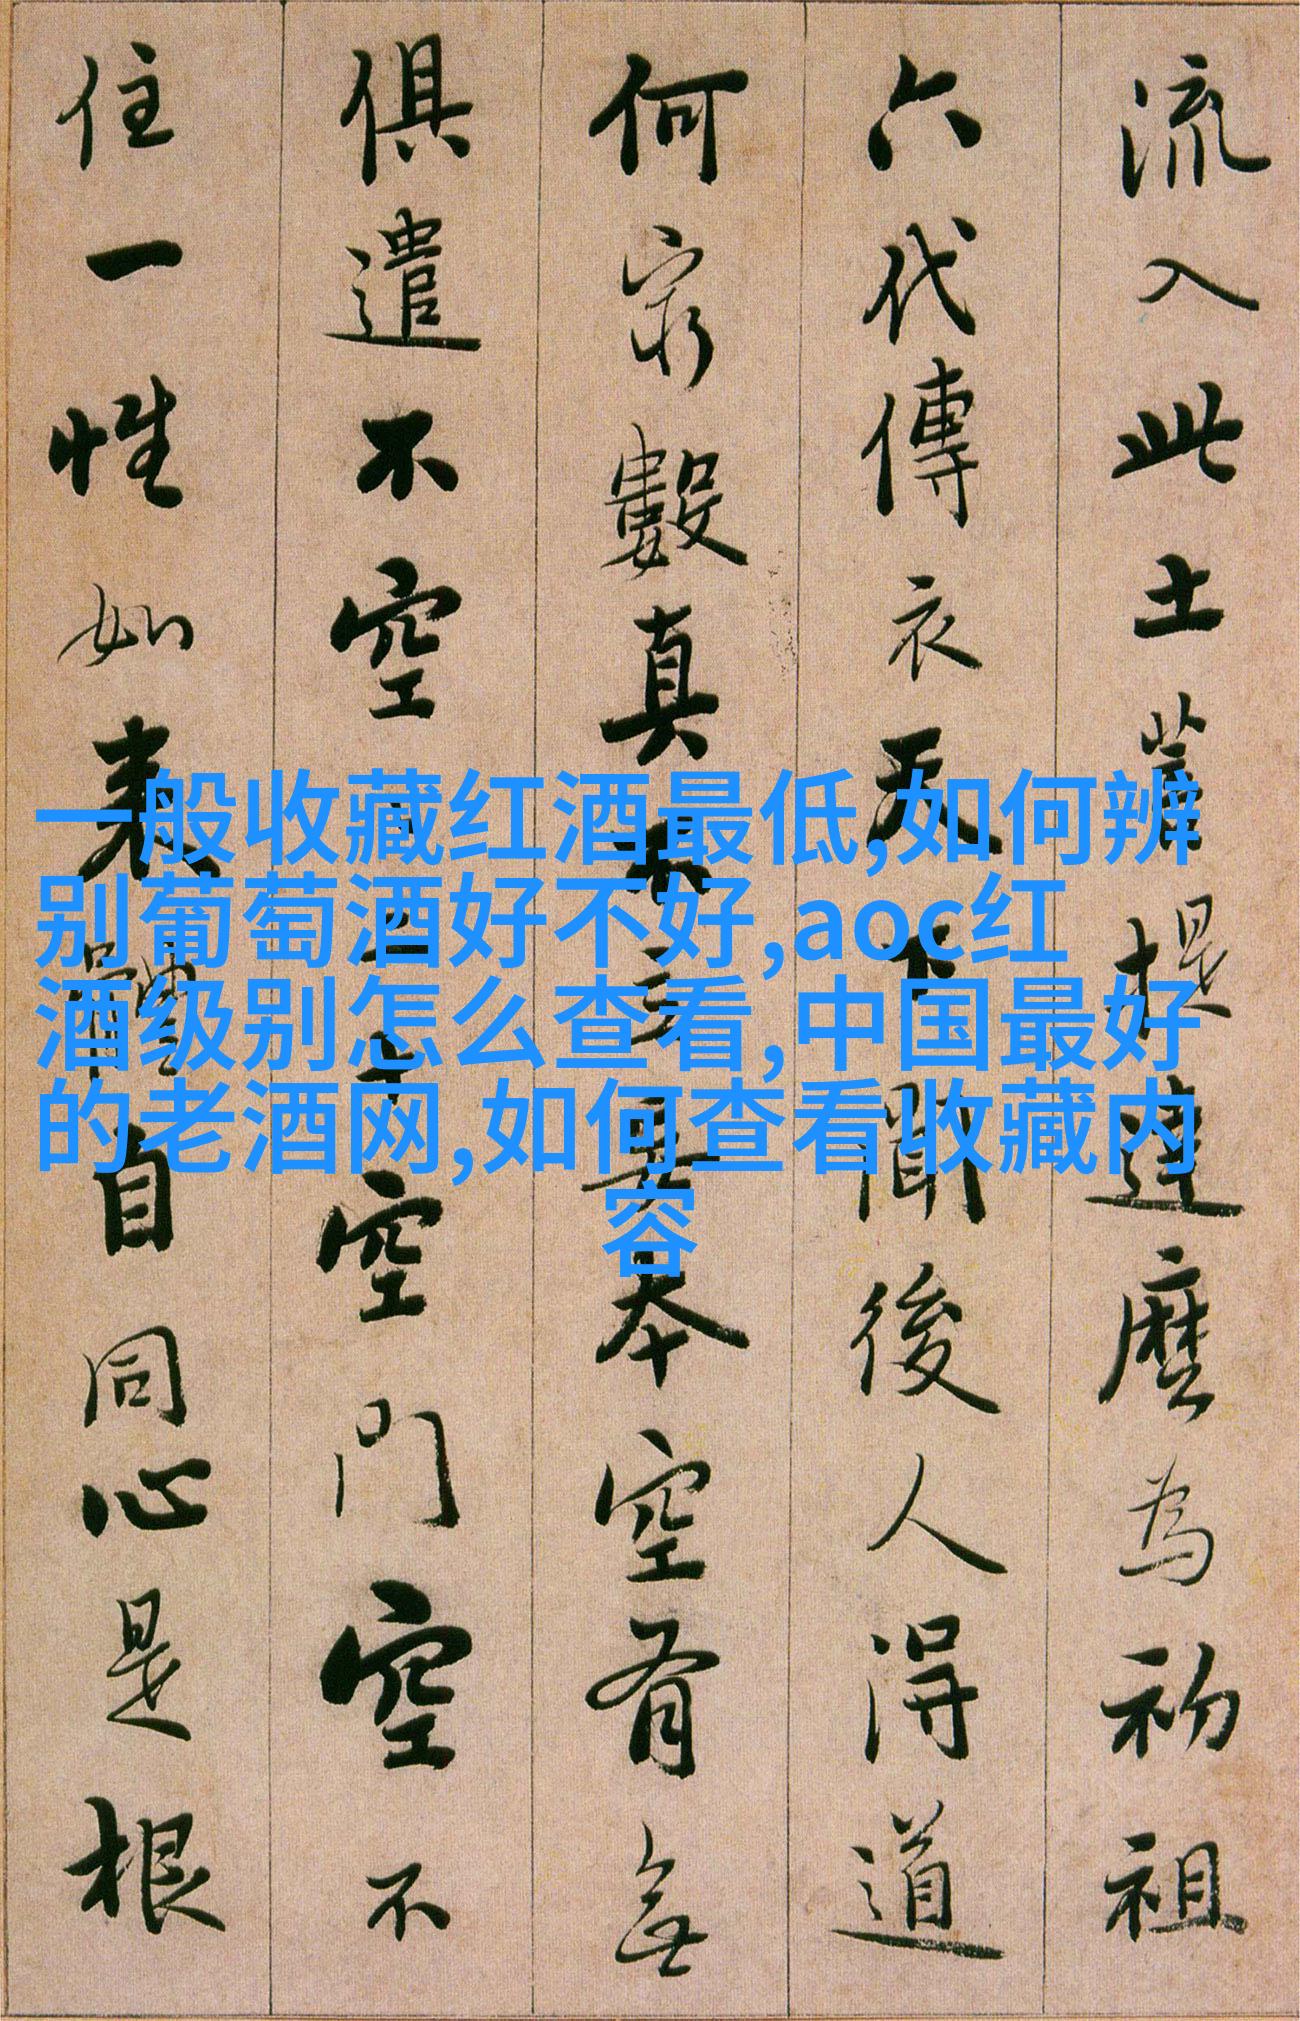 流入此土菩提達麼為初祖
六代傳衣天下聞後人得道
何窮數真不立妄本空有無
俱遣不空空二十空門空不
住一性如來體自同心是根
一般收藏红酒最低,如何辨
别葡萄酒好不好,aoc红
酒级别怎么查看,中国最好
的老酒网,如何查看收藏内
容